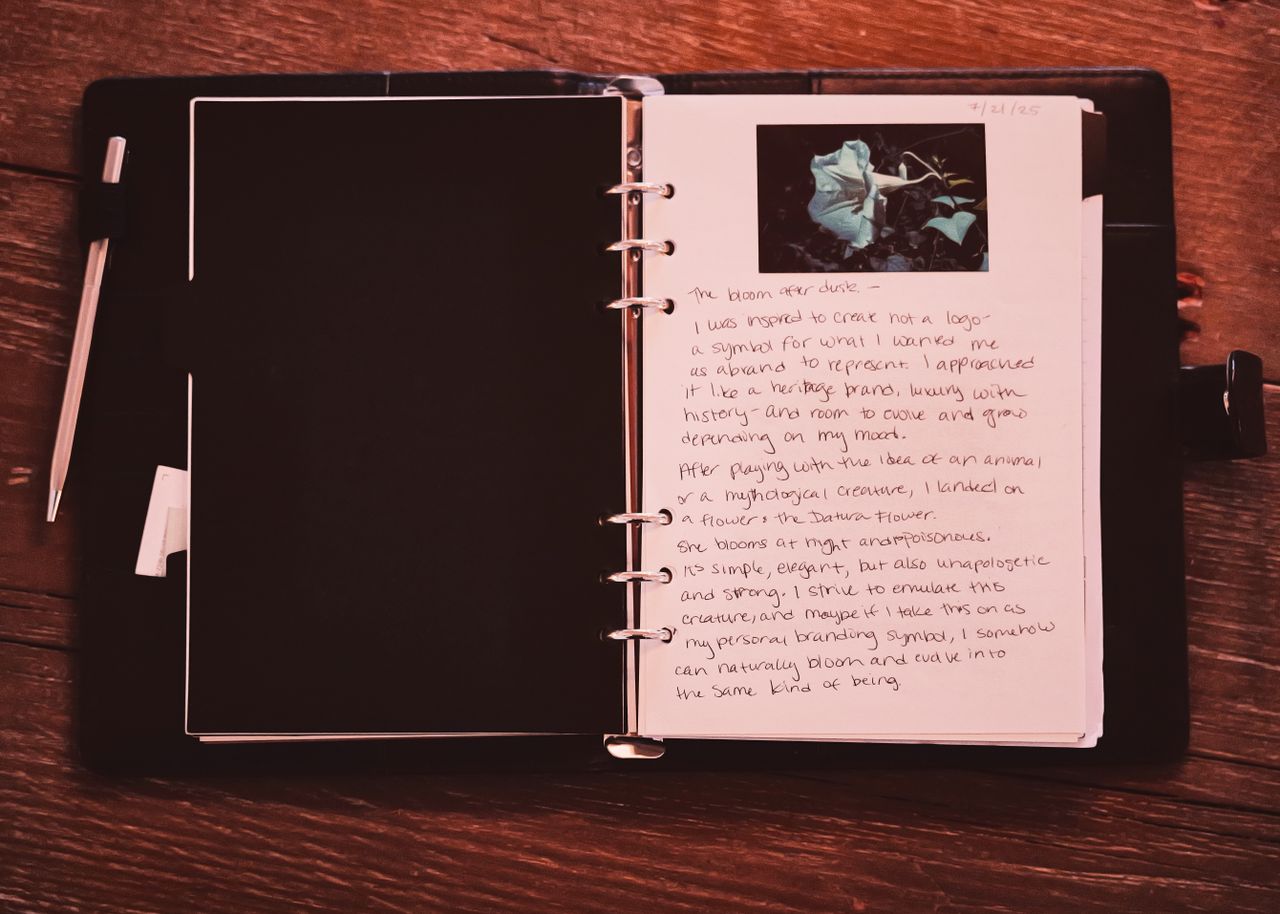 7/21/25
The bloom after dusk. —
I was inspred to create not a logo-
a symbol for what I wanted me
as abrand to represent. I approached
it like a heritage brand, luxury with
history - and room to evolve and grow
depending on my mood.
After playing with the idea of an animal
or a mythological creature, I landed on
a flower: the Datura Flower.
She blooms at night and poisonous.
It's simple, elegant, but also unapologetic
and strong. I strive to emulate this
creature, and maybe if I take this on as
my personal branding symbol, I somehow
can naturally bloom and evolve into
the same kind of being.